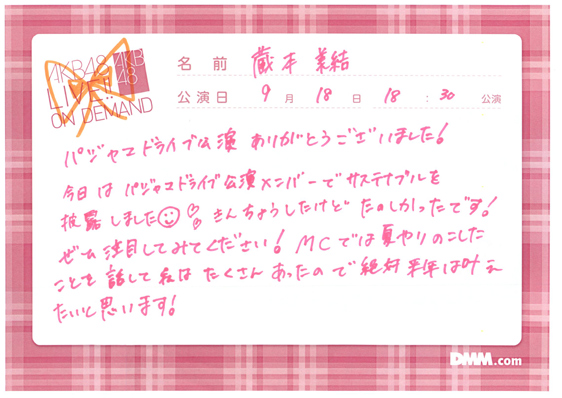 AKB48 AKB48
LIVE!!
ON DEMAND
名前 蔵本美結
公演日 9月 18日 18:30 公演
パジャマドライブ公演 ありがとうございました!
今日は パジャマドライブ公演メンバーでサステナブルを
披露しました きんちょうしたけど たのしかったです!
ぜひ注目してみてください! MCでは夏やりのこした
ことを話して私は たくさん あったので絶対 来年は叶え
たいと思います!
DMM.com